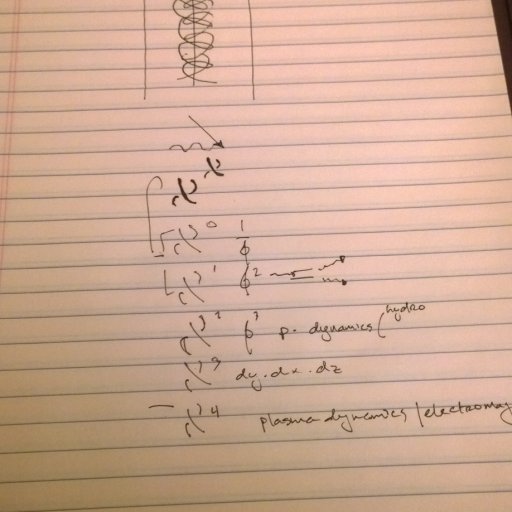 x^x
x^0 1/φ
x^1 φ^2
x^2 φ^3 p. dynamics (hydro
x^3 dy.dx.dz
x^4 plasma dynamics / electromag